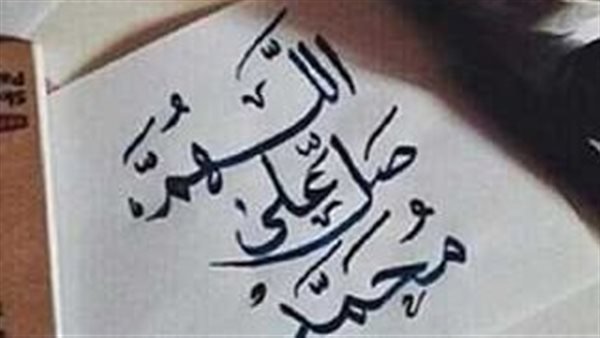 اللَّهُمَّ
صلِّ عَلى
مُحَمَّد